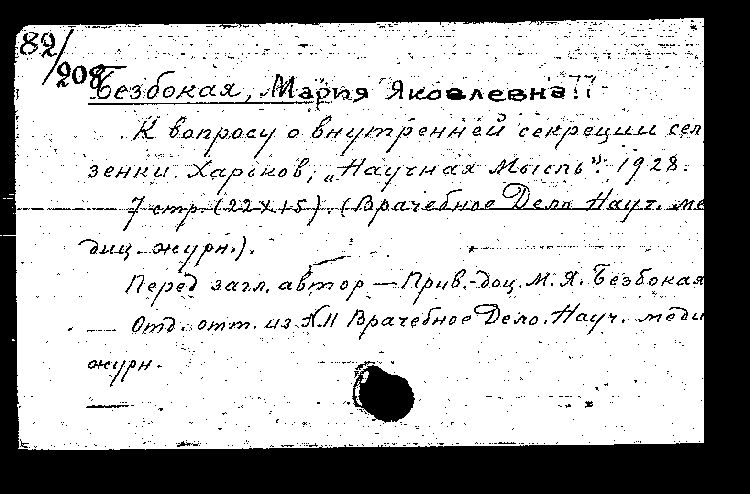 82/208
Безбокая, Мария Яковлевна.
К вопросу о внутренней секреции сел
зенки. Харьков, „Научная Мысль“. 1928.
7 стр. (22×15). (Врачебное Дело Науч. ме
диц. журн.).
Перед загл. автор — Прив.-доц. М. Я. Безбокая
— Отд. отт. из Врачебное Дело. Науч. меди
журн.